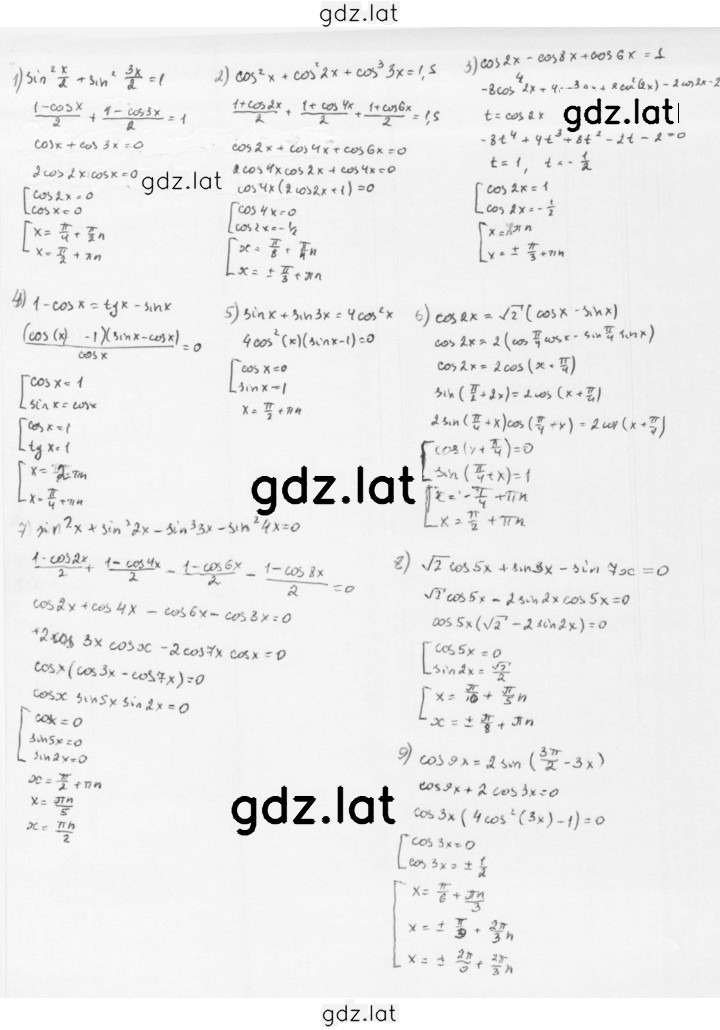 gdz.lat
1) sin² x/2 + sin² 3x/2 = 1
(1-cosx)/2 + (1-cos3x)/2 = 1
cosx + cos3x = 0
2cos2x·cosx = 0
[cos2x = 0
cosx = 0
[x = π/4 + π/2 n
x = π/2 + πn
2) cos²x + cos²2x + cos³3x = 1,5
(1+cos2x)/2 + (1+cos4x)/2 + (1+cos6x)/2 = 1,5
cos2x + cos4x + cos6x = 0
2cos4x cos2x + cos4x = 0
cos4x(2cos2x+1) = 0
[cos4x = 0
cos2x = -½
[x = π/8 + π/4 n
x = ± π/3 + πn
3) cos2x - cos8x + cos6x = 1
t = cos2x
-8t⁴ + 4t³ + 8t² - 2t - 2 = 0
t = 1, t = -½
[cos2x = 1
cos2x = -½
[x = πn
x = ± π/3 + πn
gdz.lat
gdz.lat
4) 1 - cosx = tgx - sinx
(cos(x) - 1)(sinx - cosx)/cosx = 0
[cosx = 1
sinx = cosx
[cosx = 1
tgx = 1
x = π/4 + πn
5) sinx + sin3x = 4cos²x
4cos²(x)(sinx-1) = 0
[cosx = 0
sinx = 1
x = π/2 + πn
6) cos2x = √2(cosx - sinx)
cos2x = 2(cos π/4 cosx - sin π/4 sinx)
cos2x = 2cos(x + π/4)
sin(π/2 + 2x) = 2cos(x + π/4)
2sin(π/4 + x)cos(π/4 + x) = 2cos(x + π/4)
[cos(x + π/4) = 0
sin(π/4 + x) = 1
[x = -π/4 + πn
x = π/2 + πn
gdz.lat
7) sin²x + sin²2x - sin²3x - sin²4x = 0
(1-cos2x)/2 + (1-cos4x)/2 - (1-cos6x)/2 - (1-cos8x)/2 = 0
cos2x + cos4x - cos6x - cos8x = 0
+2cos 3x cosx - 2cos7x cosx = 0
cosx(cos3x - cos7x) = 0
cosx sin5x sin2x = 0
[cosx = 0
sin5x = 0
sin2x = 0
x = π/2 + πn
x = πn/5
x = πn/2
8) √2 cos5x + sin3x - sin7x = 0
√2 cos5x - 2sin2x cos5x = 0
cos5x(√2 - 2sin2x) = 0
[cos5x = 0
sin2x = √2/2
[x = π/10 + π/5 n
x = ± π/8 + πn
gdz.lat
9) cos9x = 2sin(3π/2 - 3x)
cos9x + 2cos3x = 0
cos3x(4cos²(3x) - 1) = 0
[cos3x = 0
cos3x = ± ½
[x = π/6 + πn/3
x = ± π/9 + 2π/3 n
x = ± 2π/9 + 2π/3 n
gdz.lat